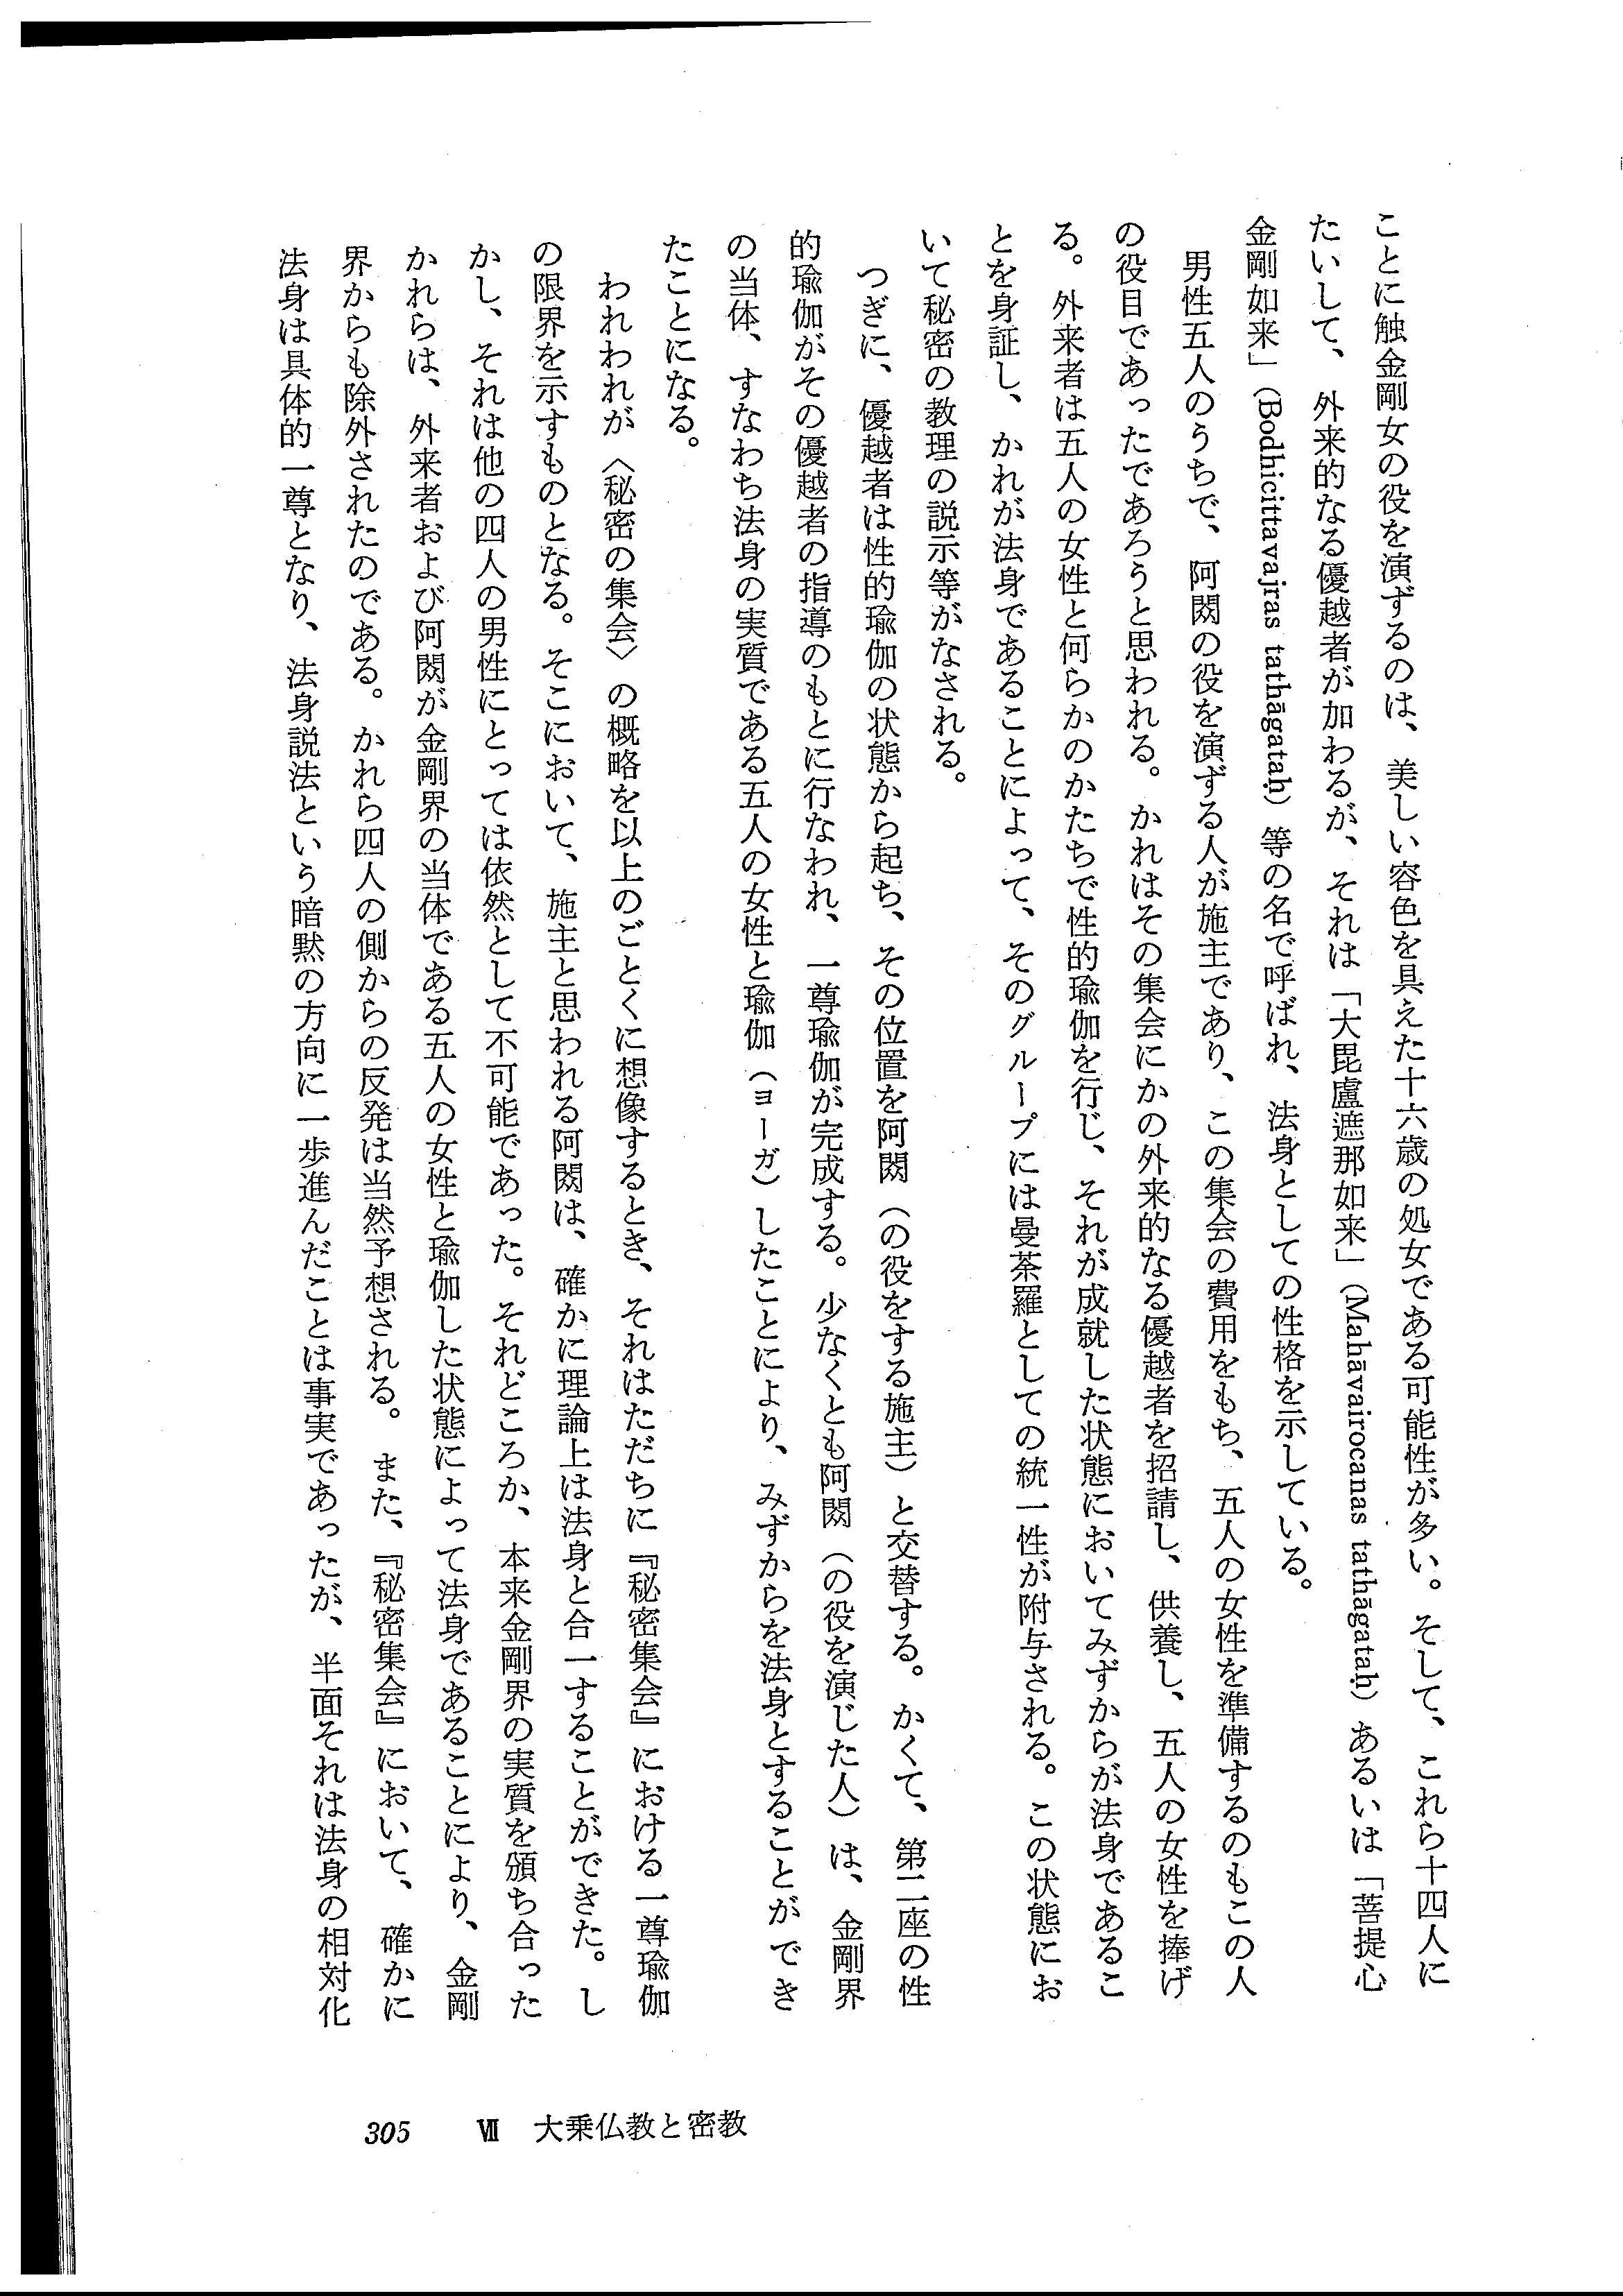 ことに触金剛女の役を演ずるのは、美しい容色を具えた十六歳の処女である可能性が多い。そして、これら十四人に
たいして、外来的なる優越者が加わるが、それは「大毘盧遮那如来」（Mahāvairocanas tathāgataḥ）あるいは「菩提心
金剛如来」（Bodhicittavajras tathāgataḥ）等の名で呼ばれ、法身としての性格を示している。
男性五人のうちで、阿閦の役を演ずる人が施主であり、この集会の費用をもち、五人の女性を準備するのもこの人
の役目であったであろうと思われる。かれはその集会にかの外来的なる優越者を招請し、供養し、五人の女性を捧げ
る。外来者は五人の女性と何らかのかたちで性的瑜伽を行じ、それが成就した状態においてみずからが法身であるこ
とを身証し、かれが法身であることによって、そのグループには曼荼羅としての統一性が附与される。この状態にお
いて秘密の教理の説示等がなされる。
つぎに、優越者は性的瑜伽の状態から起ち、その位置を阿閦（の役をする施主）と交替する。かくて、第二座の性
的瑜伽がその優越者の指導のもとに行なわれ、一尊瑜伽が完成する。少なくとも阿閦（の役を演じた人）は、金剛界
の当体、すなわち法身の実質である五人の女性と瑜伽（ヨーガ）したことにより、みずからを法身とすることができ
たことになる。
われわれが〈秘密の集会〉の概略を以上のごとくに想像するとき、それはただちに『秘密集会』における一尊瑜伽
の限界を示すものとなる。そこにおいて、施主と思われる阿閦は、確かに理論上は法身と合一することができた。し
かし、それは他の四人の男性にとっては依然として不可能であった。それどころか、本来金剛界の実質を頒ち合った
かれらは、外来者および阿閦が金剛界の当体である五人の女性と瑜伽した状態によって法身であることにより、金剛
界からも除外されたのである。かれら四人の側からの反発は当然予想される。また、『秘密集会』において、確かに
法身は具体的一尊となり、法身説法という暗黙の方向に一歩進んだことは事実であったが、半面それは法身の相対化
305 Ⅶ 大乗仏教と密教